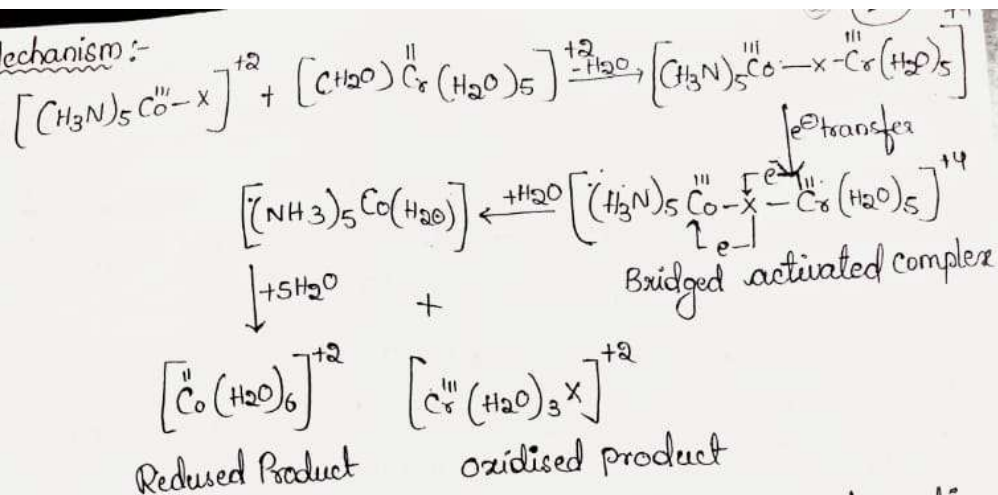 Mechanism:-
[(H3N)5 Co^III–X]^+2 + [(H2O) Cr^II (H2O)5]^+2 –H2O → [(H3N)5 Co^III–x–Cr^III (H2O)5]^+4
↓ e⊖ transfer
[(NH3)5 Co(H2O)] ← +H2O [(H3N)5 Co^III–X–Cr^II (H2O)5]^+4
e e
Bridged activated complex
↓ +5H2O +
[Co^II (H2O)6]^+2 [Cr^III (H2O)3 X]^+2
Redused Product oxidised product